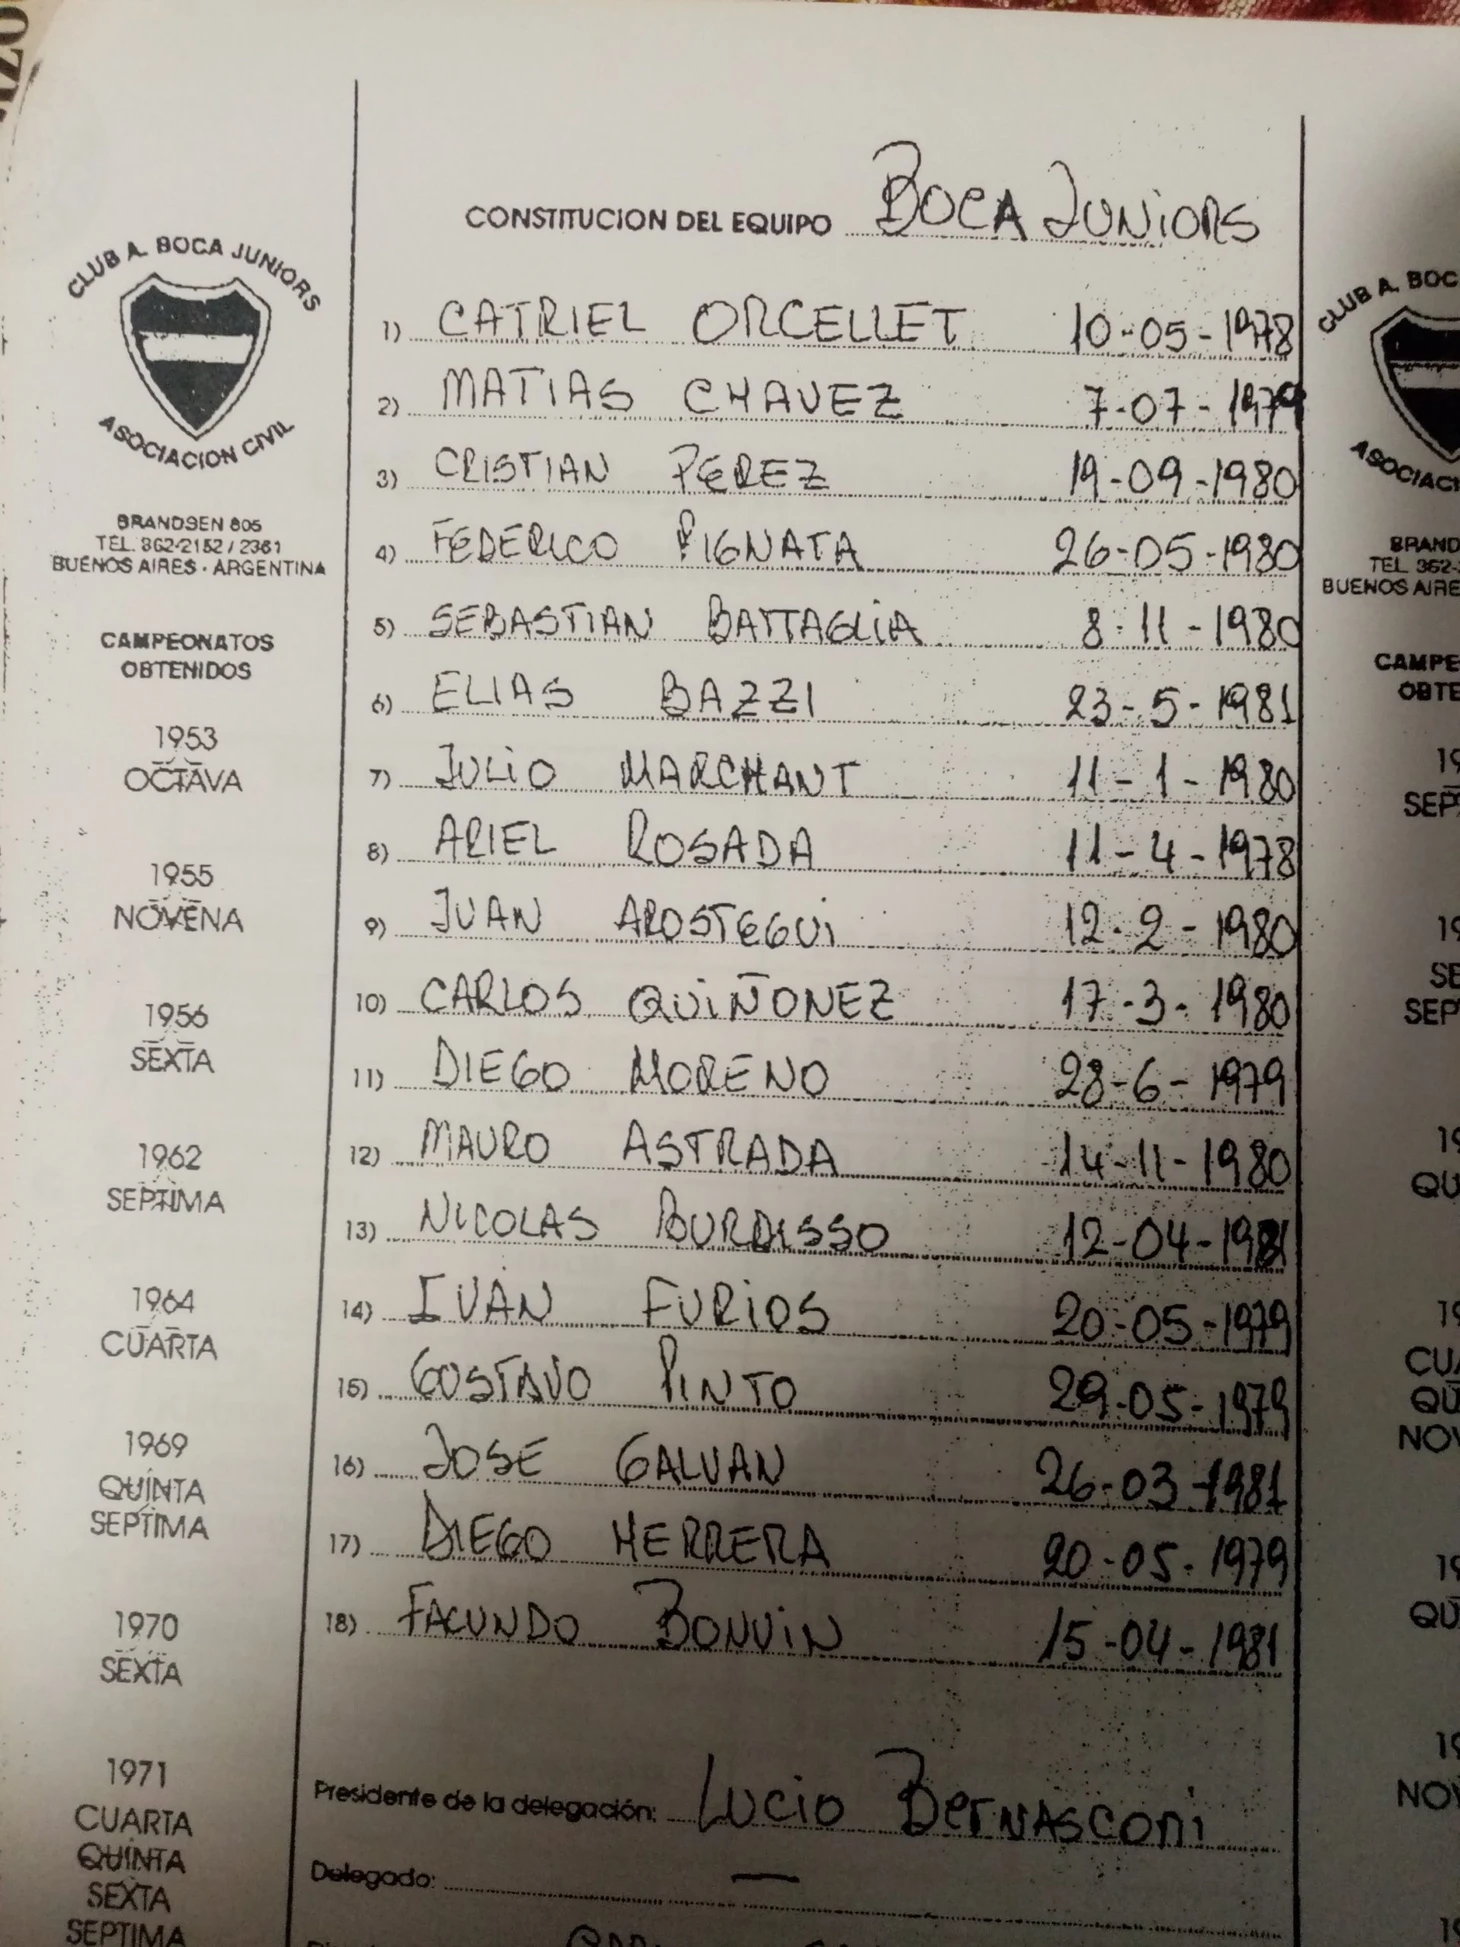 CLUB A. BOCA JUNIORS
ASOCIACION CIVIL
BRANDSEN 805
TEL. 362-2152 / 2361
BUENOS AIRES - ARGENTINA
CAMPEONATOS
OBTENIDOS
1953
OCTAVA
1955
NOVENA
1956
SEXTA
1962
SEPTIMA
1964
CUARTA
1969
QUINTA
SEPTIMA
1970
SEXTA
1971
CUARTA
QUINTA
SEXTA
SEPTIMA
CONSTITUCION DEL EQUIPO BOCA JUNIORS
1) CATRIEL ORCELLET 10-05-1978
2) MATIAS CHAVEZ 7-07-1979
3) CRISTIAN PEREZ 19-09-1980
4) FEDERICO PIGNATA 26-05-1980
5) SEBASTIAN BATTAGLIA 8-11-1980
6) ELIAS BAZZI 23-5-1981
7) JULIO MARCHANT 11-1-1980
8) ARIEL ROSADA 11-4-1978
9) JUAN AROSTEGUI 12-2-1980
10) CARLOS QUIÑONEZ 17-3-1980
11) DIEGO MORENO 28-6-1979
12) MAURO ASTRADA 14-11-1980
13) NICOLAS BURDISSO 12-04-1981
14) IVAN FURIOS 20-05-1979
15) GUSTAVO PINTO 29-05-1979
16) JOSE GALVAN 26-03-1981
17) DIEGO HERRERA 20-05-1979
18) FACUNDO BONVIN 15-04-1981
Presidente de la delegación: LUCIO BERNASCONI
Delegado: —
CLUB A. BOC
BRAND
TEL. 362-
BUENOS AIRE
CAMPE
OBTE